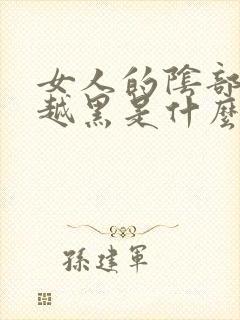 女人的陰部
越黑是什麼
孫建軍